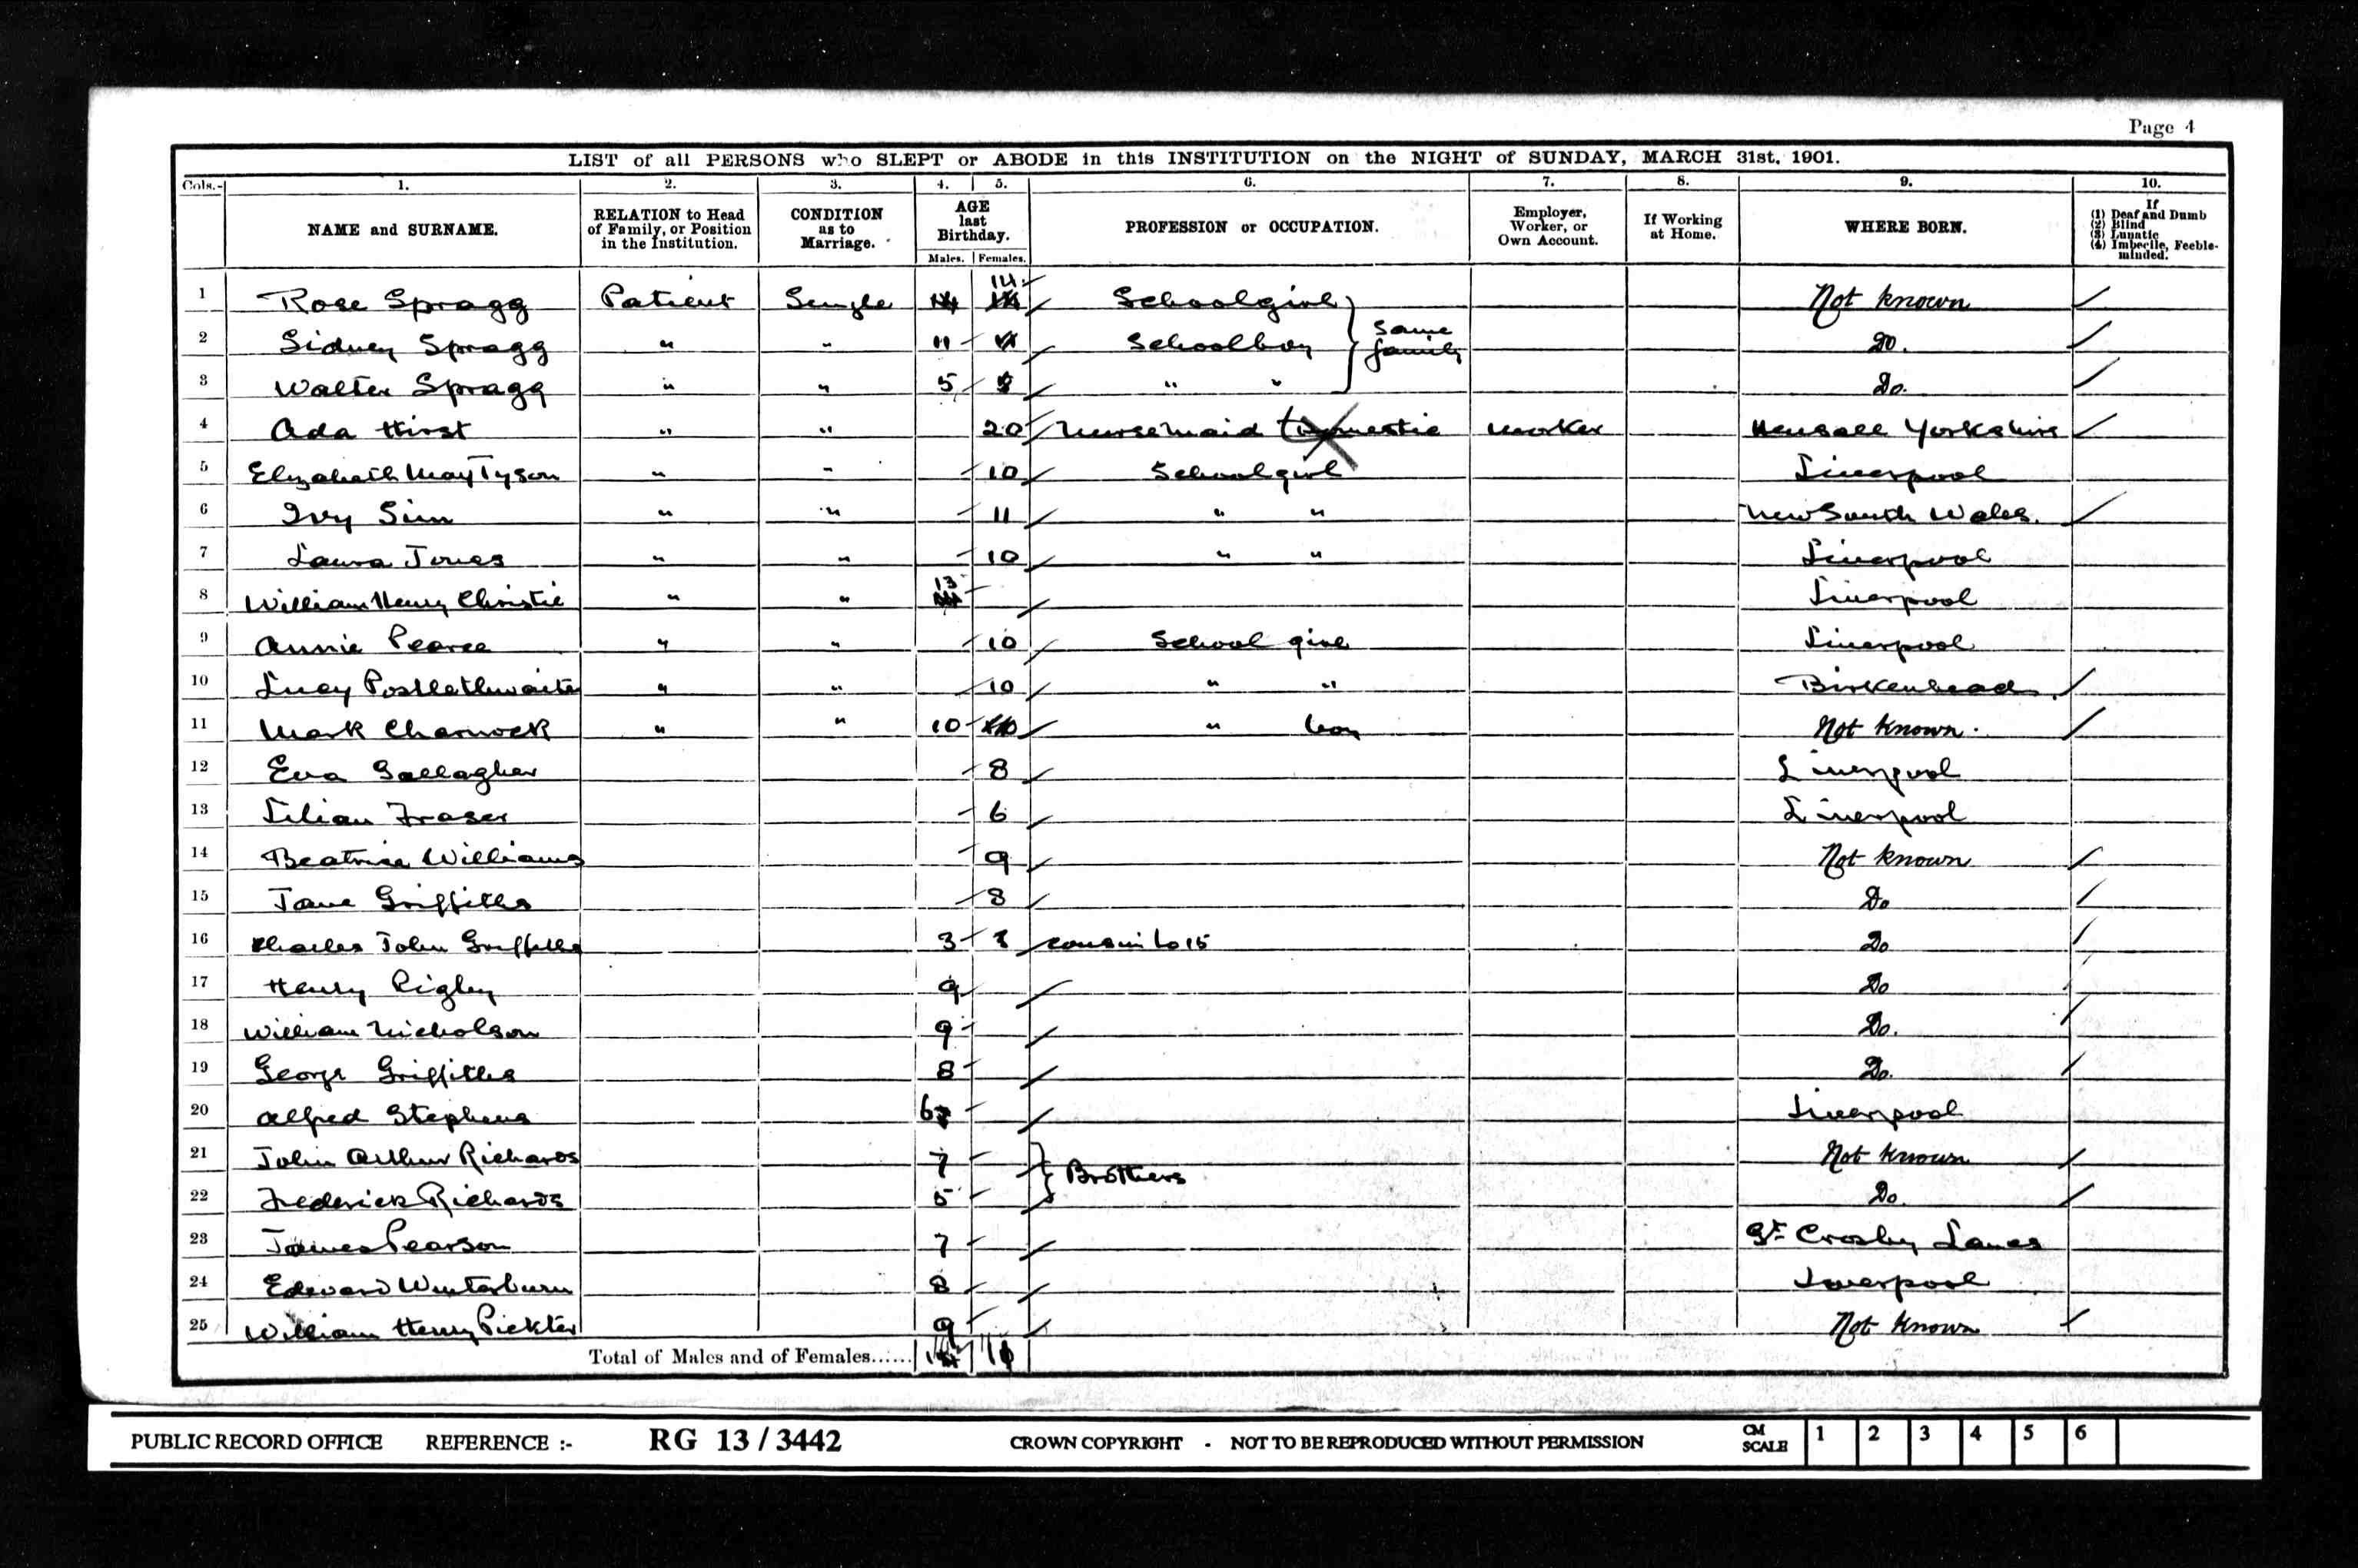 Page 4
LIST of all PERSONS who SLEPT or ABODE in this INSTITUTION on the NIGHT of SUNDAY, MARCH 31st, 1901.
Cols.- 1. 2. 3. 4. 5. 6. 7. 8. 9. 10.
NAME and SURNAME. RELATION to Head of Family, or Position in the Institution. CONDITION as to Marriage. AGE last Birthday. Males. Females. PROFESSION or OCCUPATION. Employer, Worker, or Own Account. If Working at Home. WHERE BORN. If (1) Deaf and Dumb (2) Blind (3) Lunatic (4) Imbecile, Feeble-minded.
1 Rose Spragg Patient Single 14 Schoolgirl Not known
2 Sidney Spragg " " 11 Schoolboy same family Do.
3 Walter Spragg " " 5 " " Do.
4 Ada Hirst " " 20 Nursemaid (Domestic Worker Hensall Yorkshire
5 Elizabeth May Tyson " " 10 Schoolgirl Liverpool
6 Ivy Sim " " 11 " " New South Wales.
7 Laura Jones " " 10 " " Liverpool
8 William Henry Christie " " 13 Liverpool
9 Annie Pearce " " 10 School girl Liverpool
10 Lucy Postlethwaite " " 10 " " Birkenhead
11 Mark Charnock " " 10 " boy Not known.
12 Eva Gallagher 8 Liverpool
13 Lilian Fraser 6 Liverpool
14 Beatrice Williams 9 Not known
15 Jane Griffiths 8 Do
16 Charles John Griffiths 3 cousin to 15 Do
17 Henry Rigby 9 Do
18 William Nicholson 9 Do.
19 George Griffiths 8 Do.
20 Alfred Stephens 6 Liverpool
21 John Arthur Richards 7 Brothers Not known
22 Frederick Richards 5 Do.
23 James Pearson 7 Gt Crosby Lancs
24 Edward Winterburn 8 Liverpool
25 William Henry 9 Not known
Total of Males and of Females......
PUBLIC RECORD OFFICE REFERENCE :- RG 13 / 3442 CROWN COPYRIGHT - NOT TO BE REPRODUCED WITHOUT PERMISSION CM SCALE 1 2 3 4 5 6